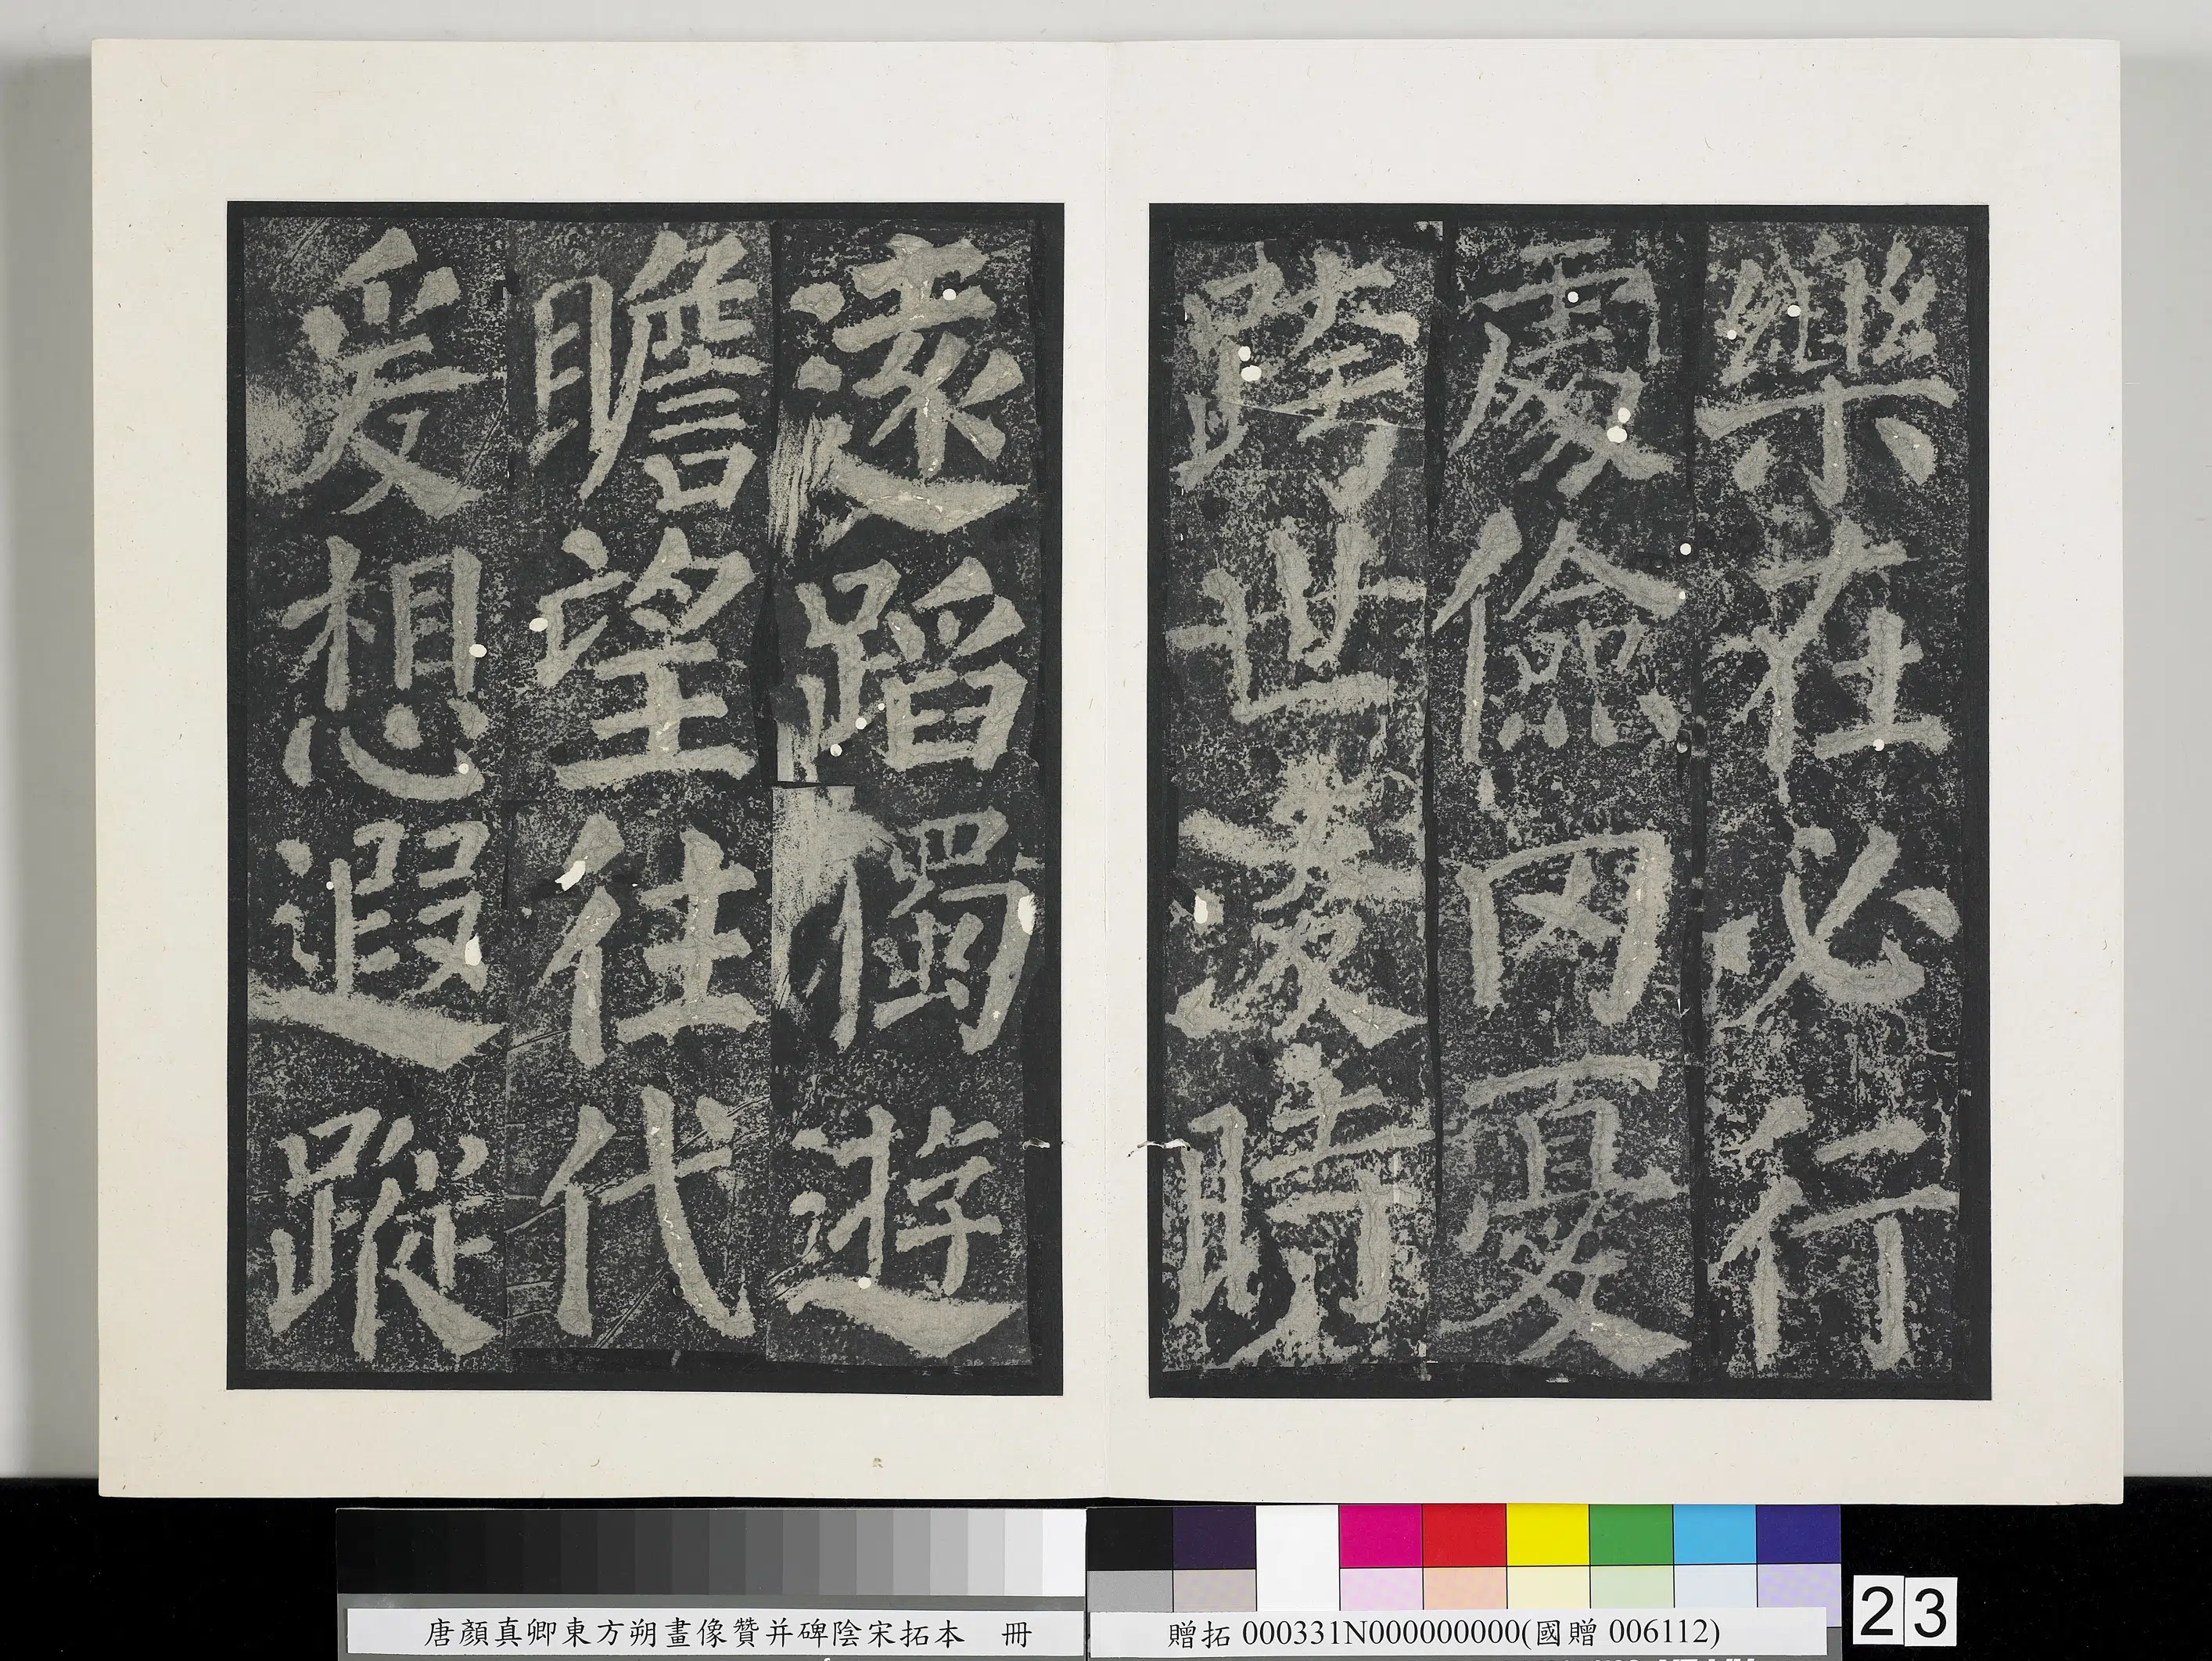 樂在必行
處儉罔憂
跨世凌時
遠蹈獨遊
瞻望往代
爰想遐蹤
唐顏真卿東方朔畫像贊并碑陰宋拓本 冊
贈拓 000331N000000000(國贈 006112)
23